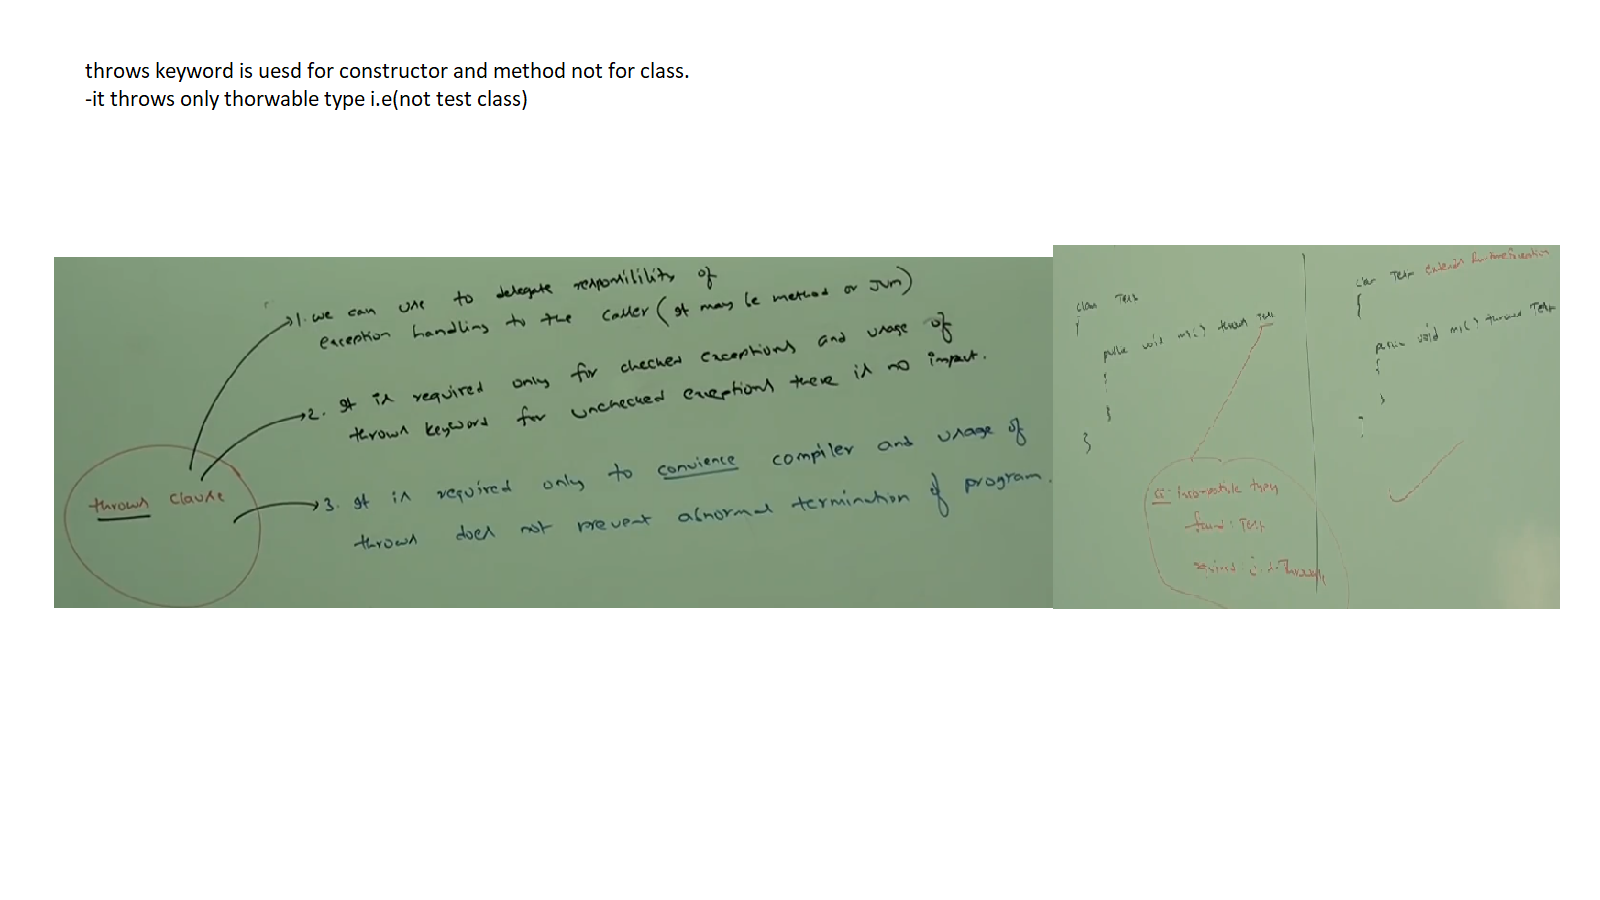 throws keyword is uesd for constructor and method not for class.
-it throws only thorwable type i.e(not test class)
1. we can use to delegate responsilility of
exception handling to the caller (it may be method or JVM)
2. It is required only for checked exceptions and usage of
throws keyword for unchecked exceptions there is no impact.
throws clause
3. It is required only to convience compiler and usage of
throws does not prevent abnormal termination of program.
class Test
{
public void m1() throws Test
{
}
}
CE: incompatible types
found: Test
required:
class Test extends RuntimeException
{
public void m1() throws Test
{
}
}